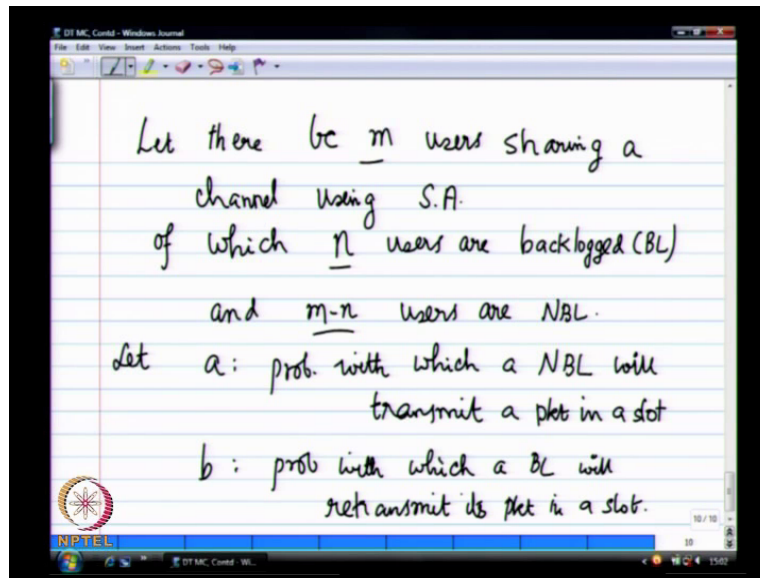 DT MC, Contd - Windows Journal
File Edit View Insert Actions Tools Help
Let there be m users sharing a
channel using S.A.
of which n users are backlogged (BL)
and m-n users are NBL.
Let a: prob. with which a NBL will
transmit a pkt in a slot
b: prob with which a BL will
retransmit its pkt in a slot.
10 / 10
10
NPTEL
DT MC, Contd - Wi...
1502